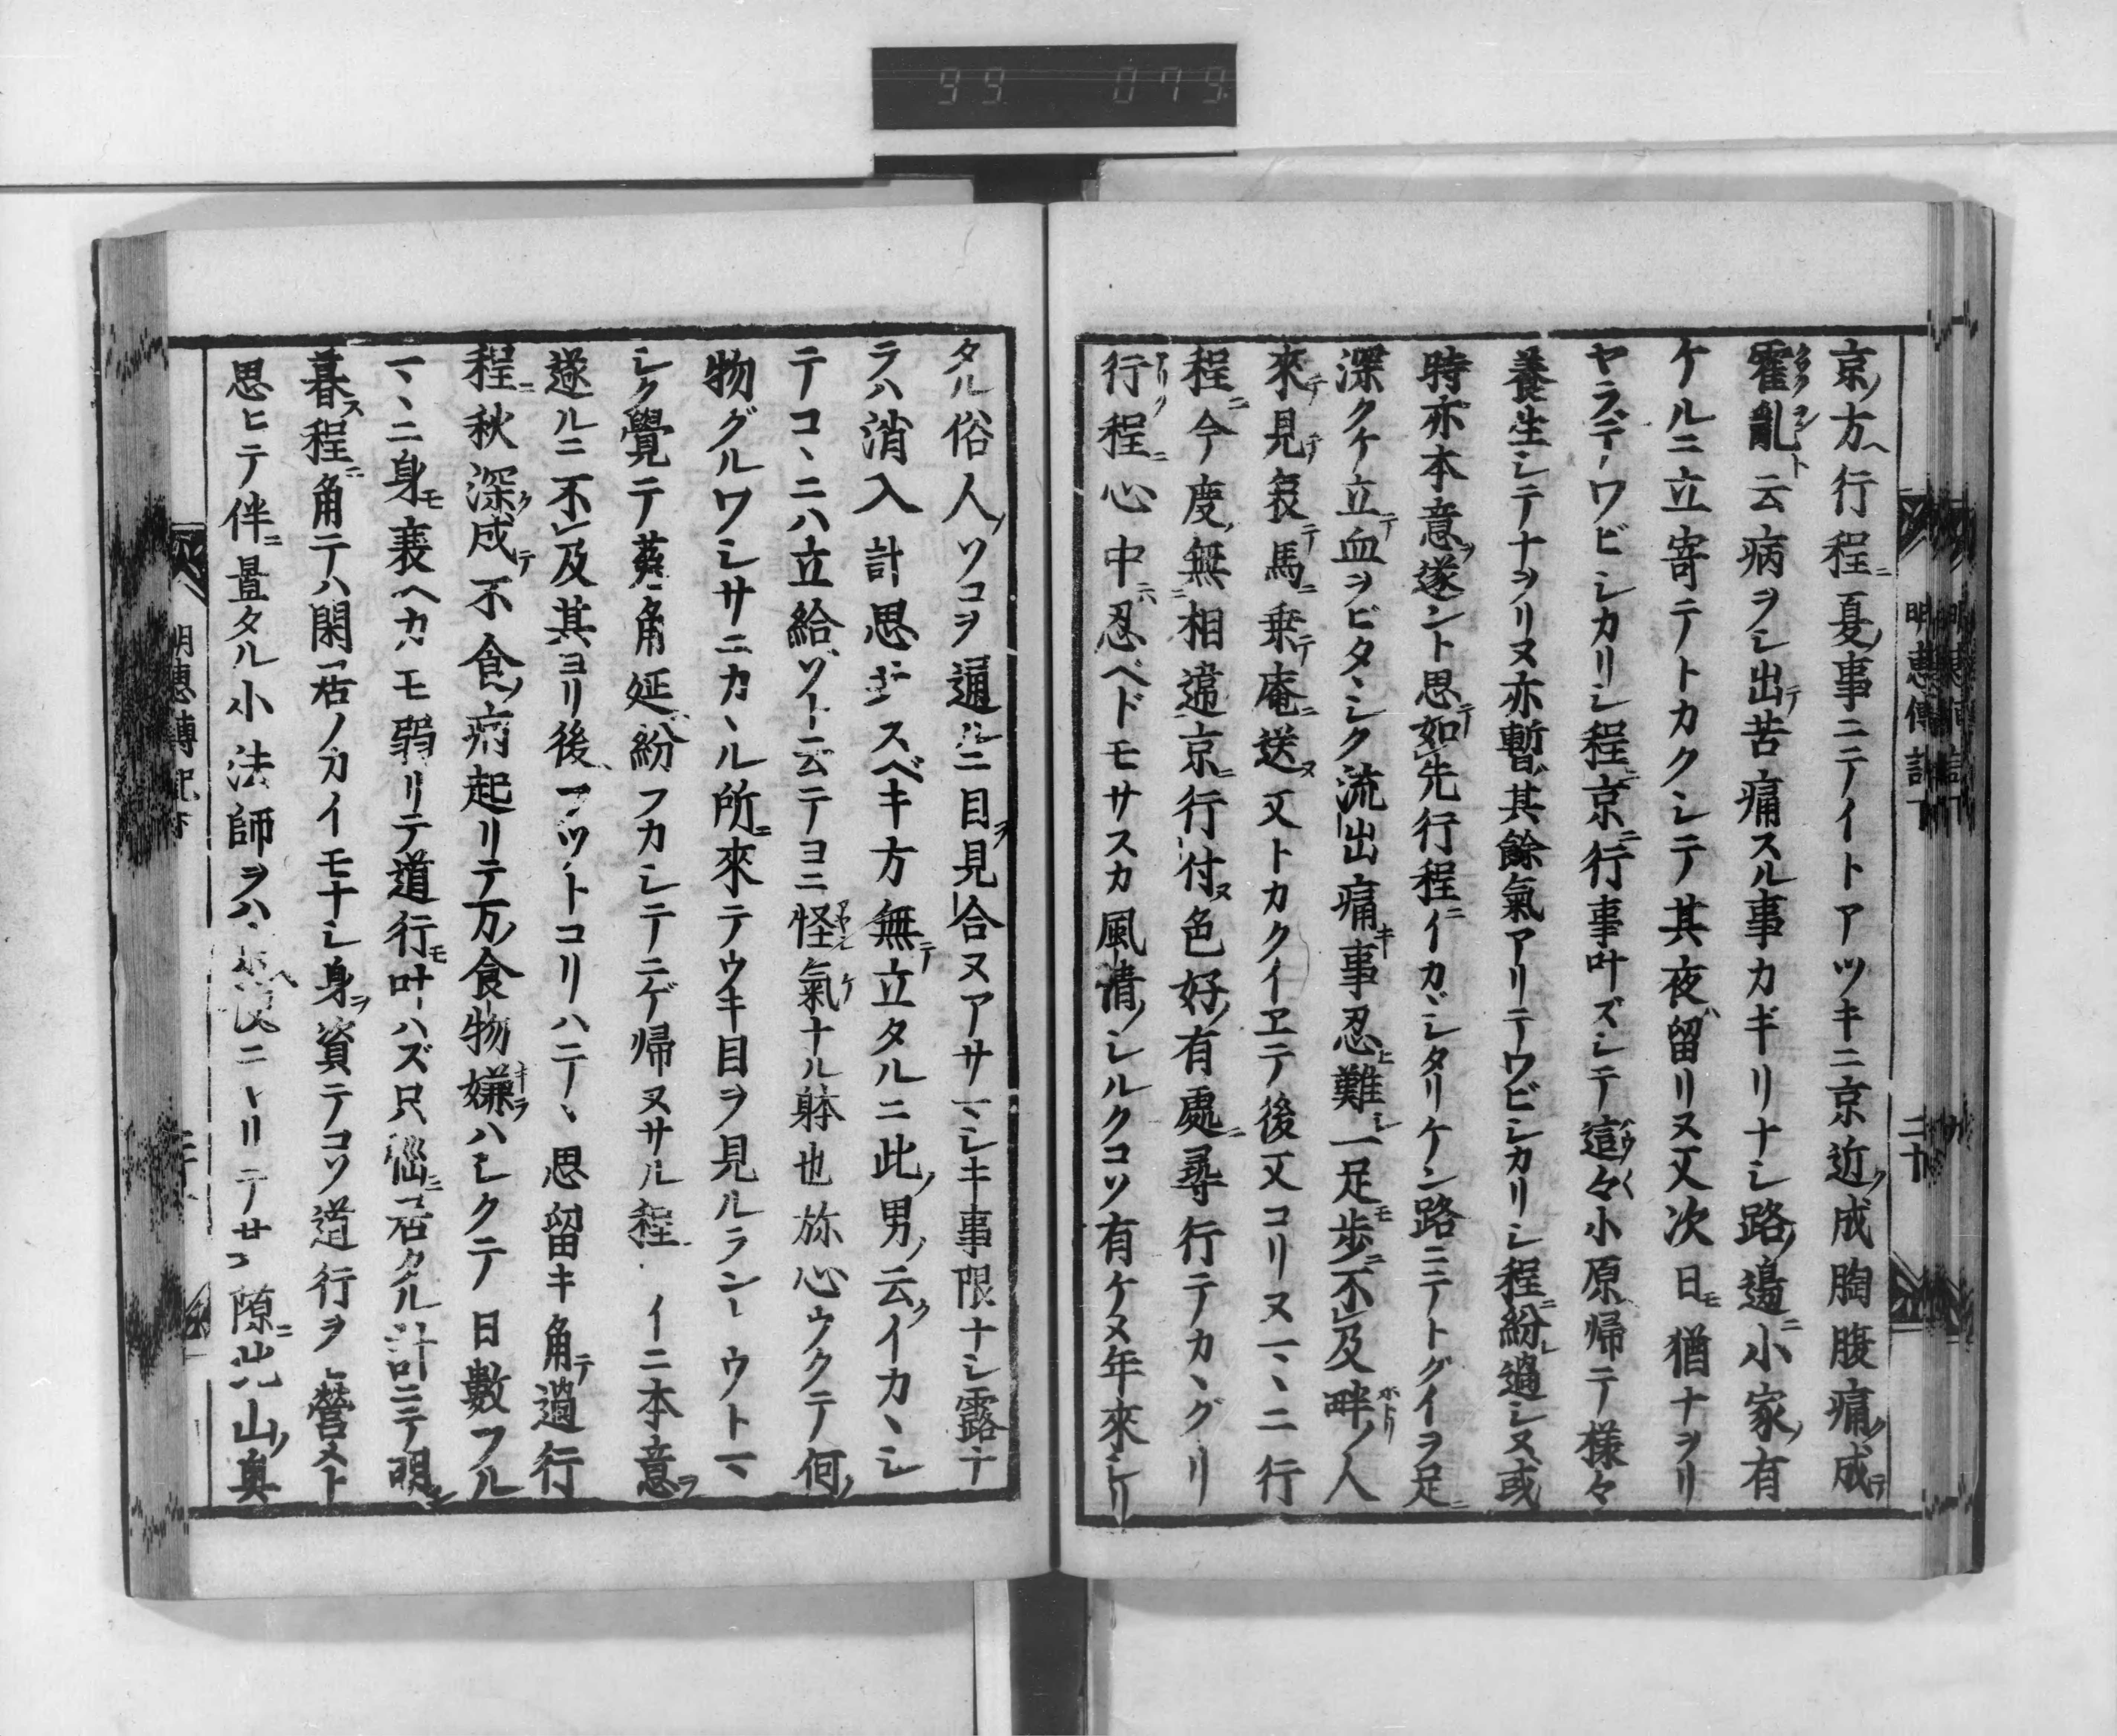 99 079
京ノ方ヘ行程ニ夏ノ事ニテイトアツキニ京近ク成胸腹痛ク成テ
霍亂ト云病ヲシ出テ苦痛スル事カギリナシ路ノ邉ニ小家ノ有
ケルニ立寄テトカクシテ其夜ハ留リヌ又次日モ猶ナヲリ
ヤラデワビシカリシ程ニ京ニ行事叶ズシテ這々小原ヘ帰テ様々
養生シテナヲリヌ亦暫ハ其餘氣アリテワビシカリシ程ニ紛レ過シヌ或
時亦本意ヲ遂ント思テ如先行程ニイカヾシタリケン路ニテトグイヲ足ニ
深クケ立テ血ヲビタヽシク流出痛キ事忍ヒ難シ一足モ歩ニ不及畔ノ人
來テ見テ哀テ馬ニ乗テ庵ニ送ヌ又トカクイヱテ後又コリヌマヽニ行
程ニ今度ハ無相違京ニ行付ヌ色好ノ有處ニ尋行テカヽグリ
行程ニ心中ニハ忍ベドモサスカ風情ノシルクコソ有ケメ年來シリ
タル俗人ノソコヲ通ルニ目ヲ見合ヌアサマシキ事限ナシ露ナ
ラハ消入計思ヘドモスベキ方無テ立タルニ此ノ男ノ云クイカヽシ
テコヽニハ立給ソト云テヨニ怪氣ナル躰也弥心ウクテ何ノ
物グルワシサニカヽル所ニ來テウキ目ヲ見ルラントウトマ
シク覺テ兎角延紛フカシテニゲ帰ヌサル程ニイニ本意ヲ
遂ルニ不及其ヨリ後ハフツトコリハテヽ思留キ角テ過行
程ニ秋深ク成テ不食ノ病起リテ万ノ食物嫌ハシクテ日數フル
マヽニ身モ衰ヘカモ弱リテ道行モ叶ハズ只徒ニ居タル計ニテ明シ
暮ス程ニ角テハ閑居ノカイモナシ身ヲ資テコソ道行ヲモ營メト
思ヒテ伴ニ置タル小法師ヲハ
明惠傳記下
二十